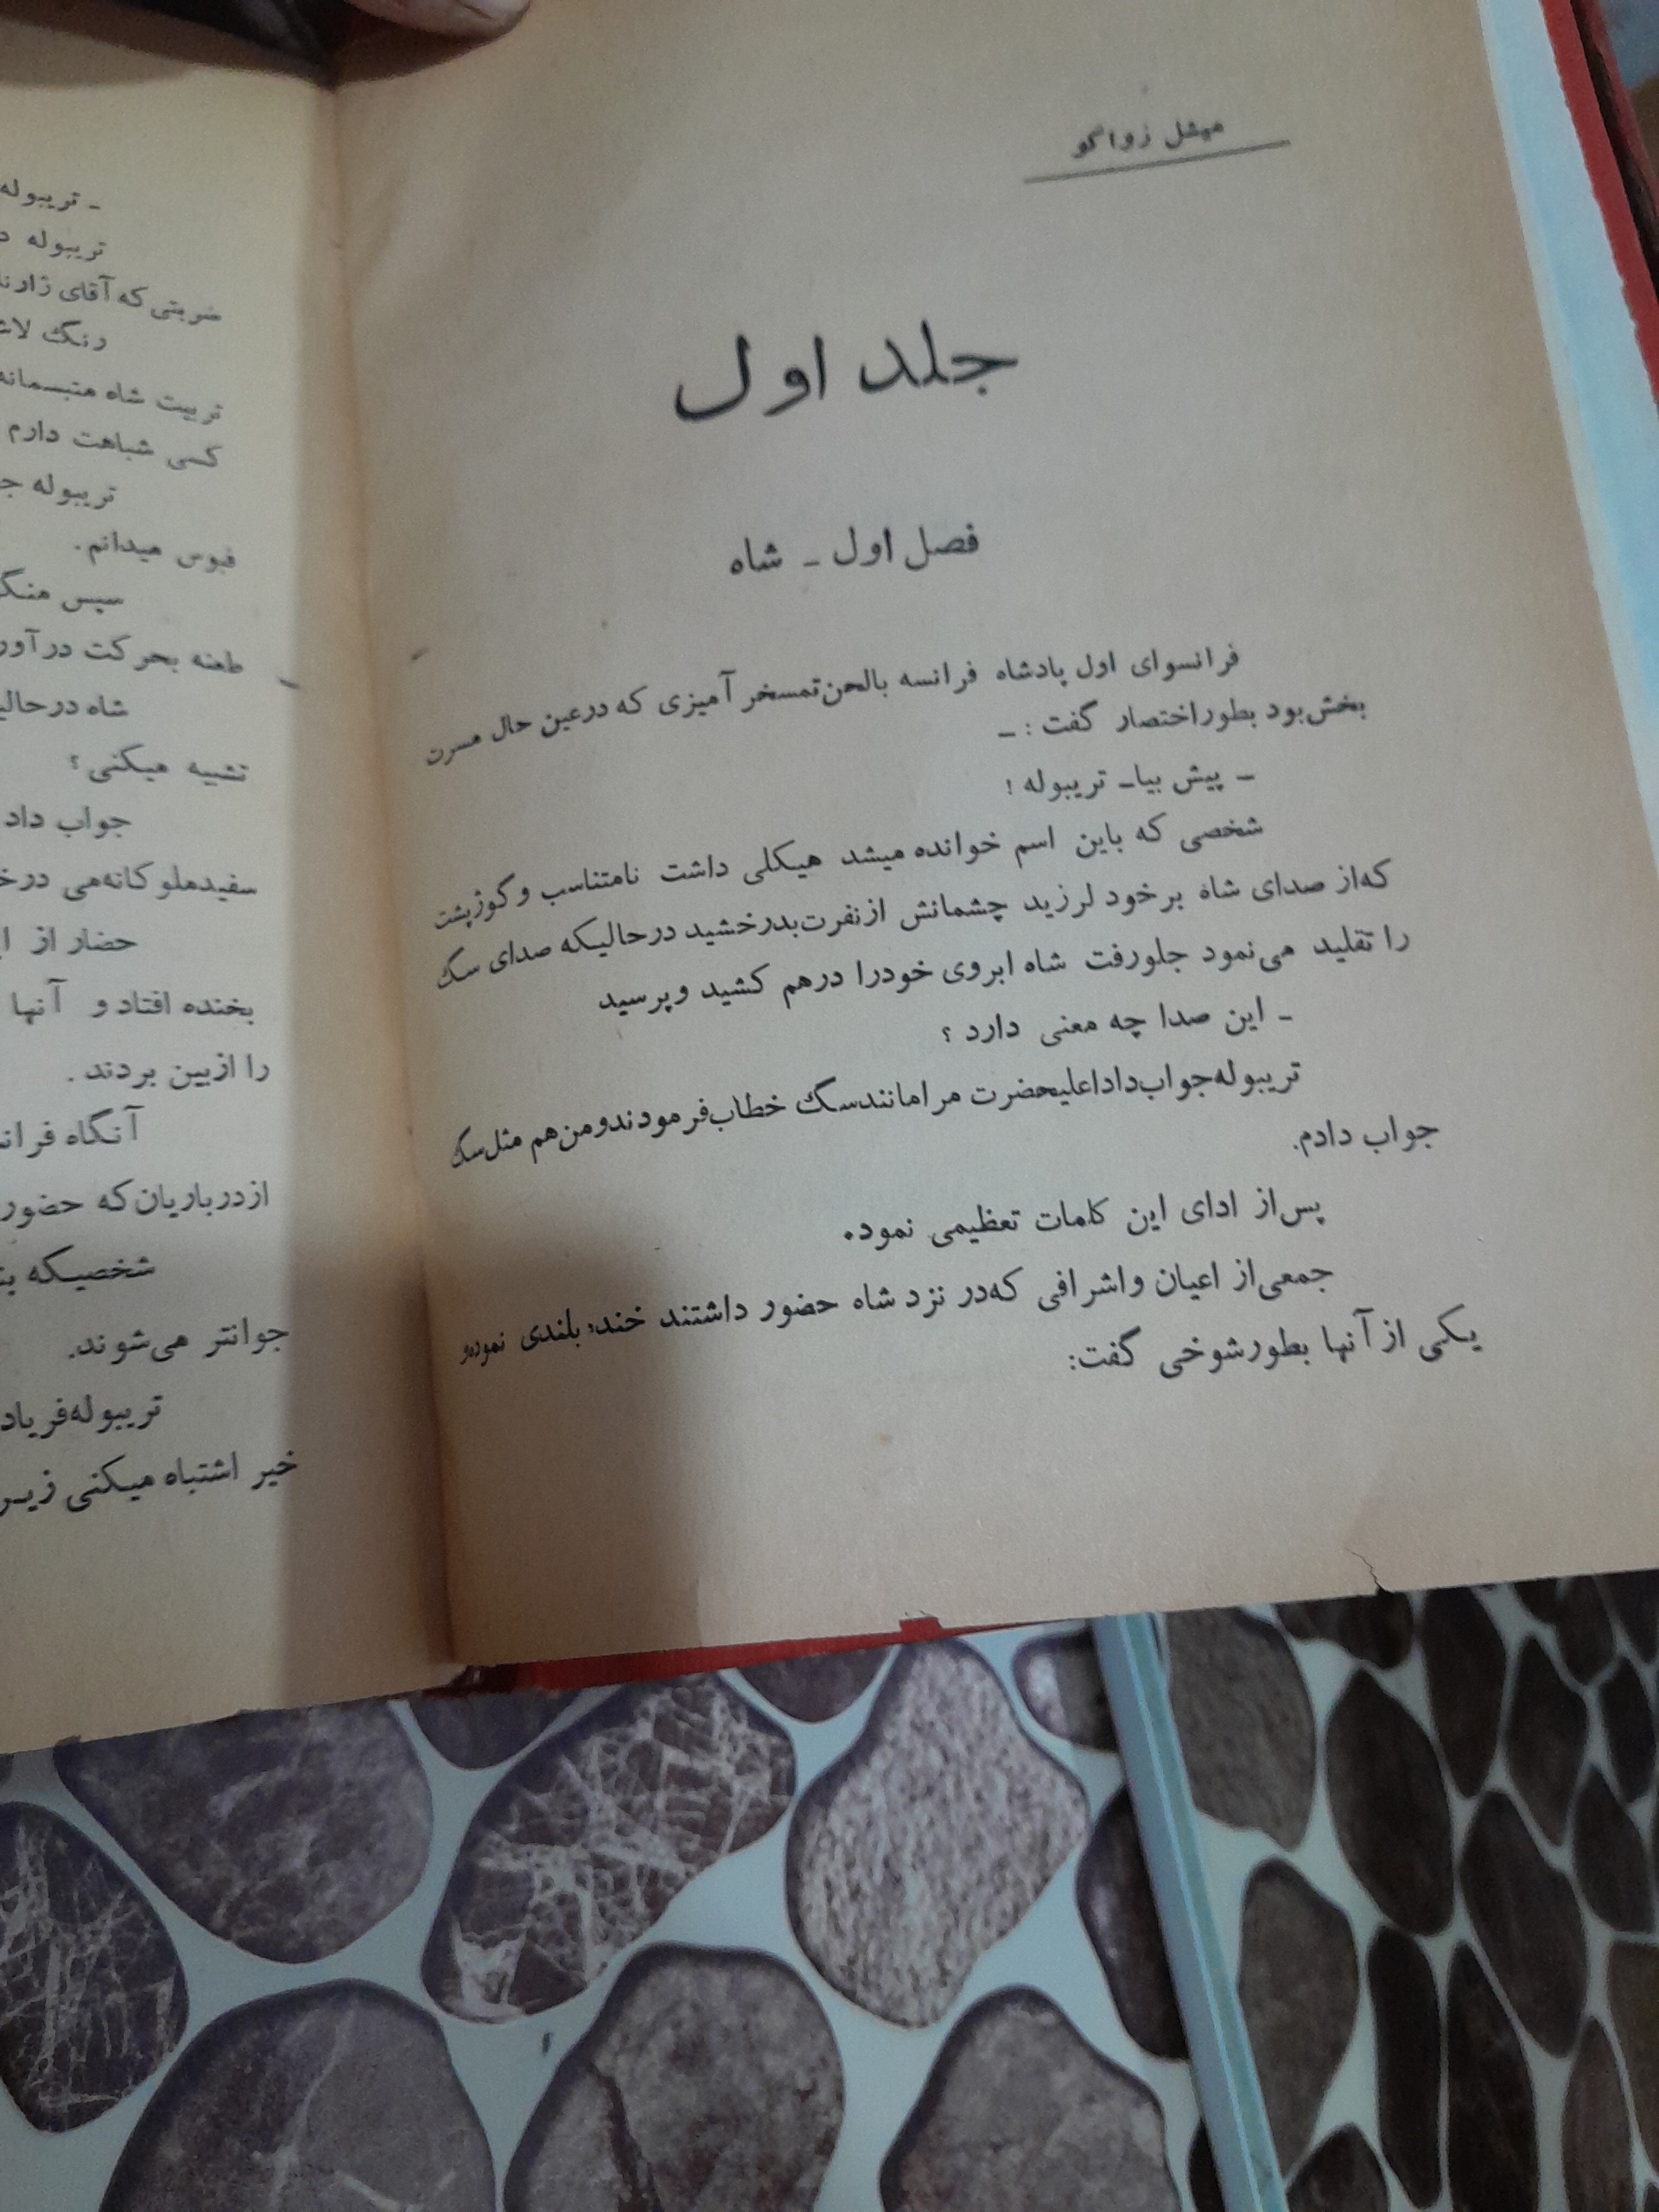 میشل زواگو
جلد اول
فصل اول - شاه
فرانسوای اول پادشاه فرانسه بالحن تمسخر آمیزی که در عین حال مسرت
بخش بود بطور اختصار گفت : -
- پیش بیا- تریبوله !
شخصی که باین اسم خوانده میشد هیکلی داشت نامتناسب و گوژپشت
که از صدای شاه برخود لرزید چشمانش از نفرت بدرخشید در حالیکه صدای سگ
را تقلید می‌نمود جلو رفت شاه ابروی خود را در هم کشید و پرسید
- این صدا چه معنی دارد ؟
تریبوله جواب داد اعلیحضرت مرا مانند سگ خطاب فرمودند و من هم مثل سگ
جواب دادم.
پس از ادای این کلمات تعظیمی نمود.
جمعی از اعیان و اشرافی که در نزد شاه حضور داشتند خنده بلندی نموده و
یکی از آنها بطور شوخی گفت:
- تریبوله
تریبوله
ضربتی که آقای
رنگ
تربیت شاه متبسمانه
کسی شباهت دارم
تریبوله
میدانم.
سپس
طعنه بحرکت در آور
شاه در حالی
تشبیه میکنی ؟
جواب داد
سفید ملوکانه می
حضار از
بخنده افتاد و آنها
را از بین بردند .
آنگاه
از درباریان که حضور
شخصیکه
جوانتر می‌شوند.
تریبوله فریاد
خیر اشتباه میکنی